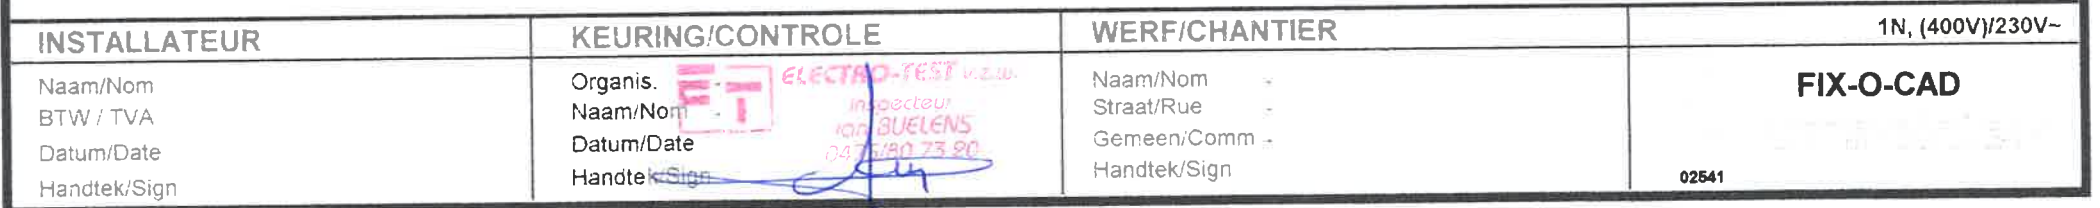 INSTALLATEUR
Naam/Nom
BTW / TVA
Datum/Date
Handtek/Sign
KEURING/CONTROLE
Organis. -
Naam/Nom -
Datum/Date
Handtek/Sign
ET
ELECTRO-TEST v.z.w.
Inspecteur
Jan BUELENS
0475/80 73 90
WERF/CHANTIER
Naam/Nom -
Straat/Rue -
Gemeen/Comm -
Handtek/Sign
1N, (400V)/230V~
FIX-O-CAD
02541